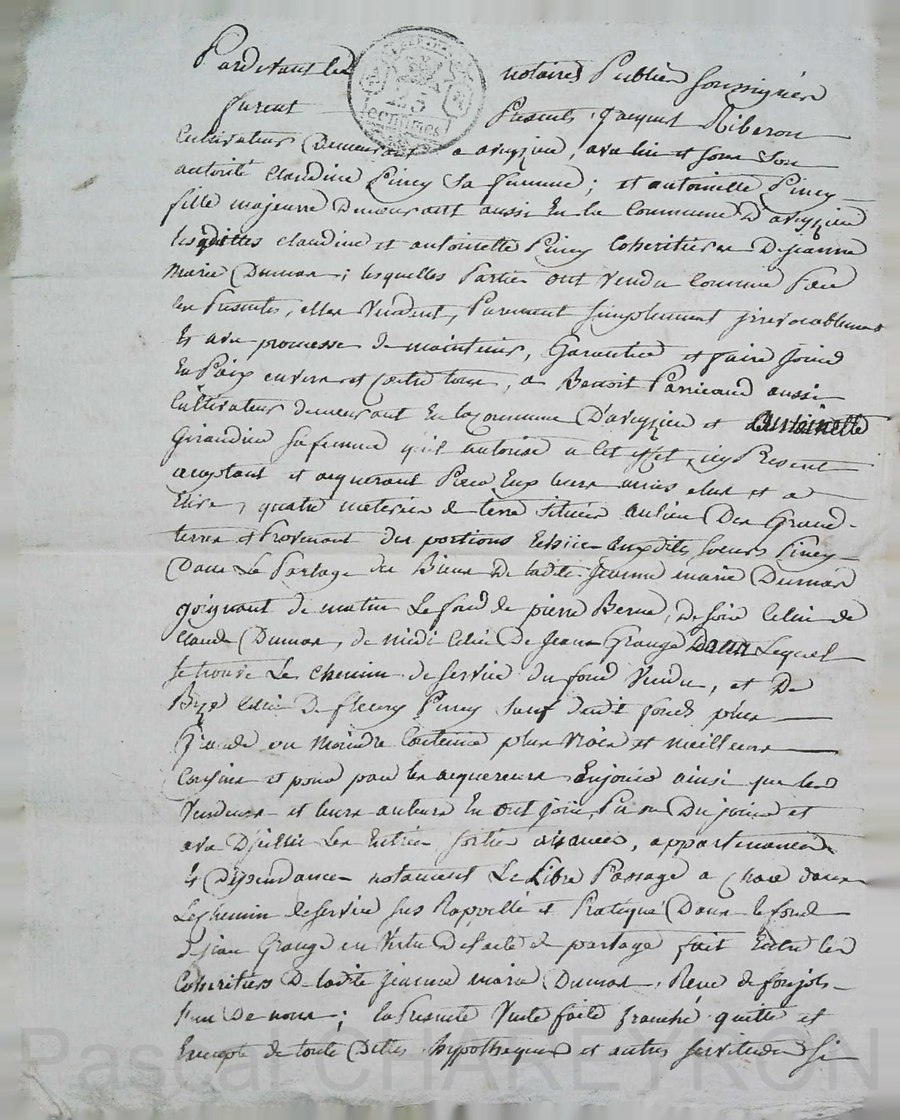 Pardevant les notaires Publics soussignés
furent Presents Jacques Riberon
Cultivateur Demeurant a aveyzieu, avec lui et sous Son
autorité Claudine Piney Sa femme; et antoinette Piney
fille majeurre Demeurant aussi En la Commune D'aveyzieu
lesquittes Claudine et antoinette Piney Coheritieres De Jeanne
Marie Dumas; lesquelles Parties ont vendu Comme Par
les Presentes, elles Vendent, Purement simplement irrevocablement
Et avec promesse de maintenir, Garantir et faire Jouir
En Paix envers et contre tous, a Benoit Parricaud aussi
Cultivateur demeurant En la Commune D'aveyzieu et Antoinette
Giraudier sa femme qu'il autorise a Cet effet, icy Present
aceptant et aquerant Pour Eux leurs amis elus et a
Elire, quatre meterées de terre située au lieu Des Grand-
terres et Provenant des portions Echüe auxdites soeurs Piney
Dans Le Partage des Biens De ladite Jeanne marie Dumas
joignant de matin Le fond de pierre Berne, De soir Celui de
Claude Dumas, de midi Celui De Jean Grange Dans Lequel
se trouve Le chemin de service du fond Vendu, et De
Bize Celui De fleury Piney sauf dudit fonds plus
Grande ou Moindre Contenue plus Vrais et meilleurs
Confins et pour par les aquereurs En jouir ainsi que les
Vendeurs et leurs auteurs En ont joüi, Pu ou Du jouir et
avec D'jcellui Les Entrées sorties aisances, appartenances
Et Dépendances notament Le Libre Passage a Char dans
Le Chemin de service sus Rappellé et Pratiqué Dans le fond
d'jean Grange en Vertu de l'acte de partage fait Entre les
Coheritiers De ladite Jeanne marie Dumas. Reçu de
l'un De nous; la Presente Vente faite franche quitte et
Exempte de toute Dettes hypotheques et autres servitudes si
Pascal CHAREYRON